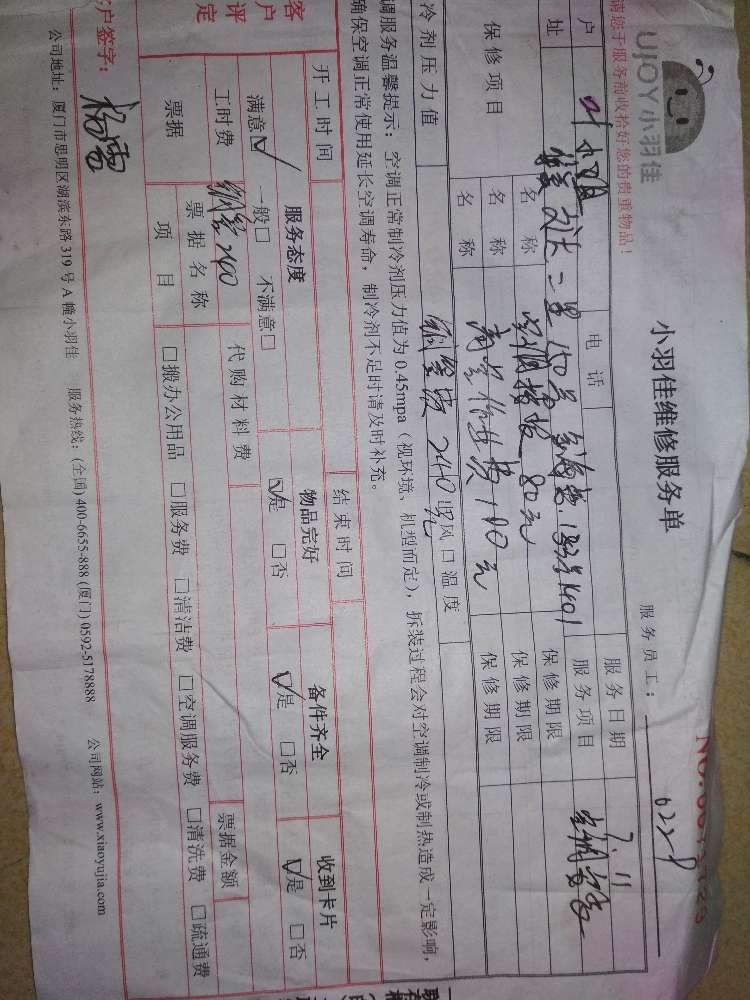 UJOY小羽佳
小羽佳维修服务单
请您于服务前收拾好您的贵重物品！
服务员工： 0228
户 叶小姐 电话 服务日期 7.11
址 一里150号 1401 服务项目 空调
保修项目 名称 80元 保修期限
名称 高空作业费100元 保修期限
名称 保修期限
冷剂压力值 240元 风口温度
调服务温馨提示：空调正常制冷剂压力值为0.45mpa（视环境、机型而定），拆装过程会对空调制冷或制热造成一定影响，
确保空调正常使用延长空调寿命，制冷剂不足时请及时补充。
开工时间 结束时间
客户评定 服务态度 物品完好 备件齐全 收到卡片
满意☑ 一般□ 不满意□ ☑是 □否 ☑是 □否 ☑是 □否
工时费 代购材料费 票据金额
票据 票据名称
项目 □搬办公用品 □服务费 □清洁费 □空调服务费 □清洗费 □疏通费
户签字：
公司地址：厦门市思明区湖滨东路319号A幢小羽佳 服务热线：(全国) 400-6655-888 (厦门) 0592-5178888 公司网站：www.xiaoyujia.com